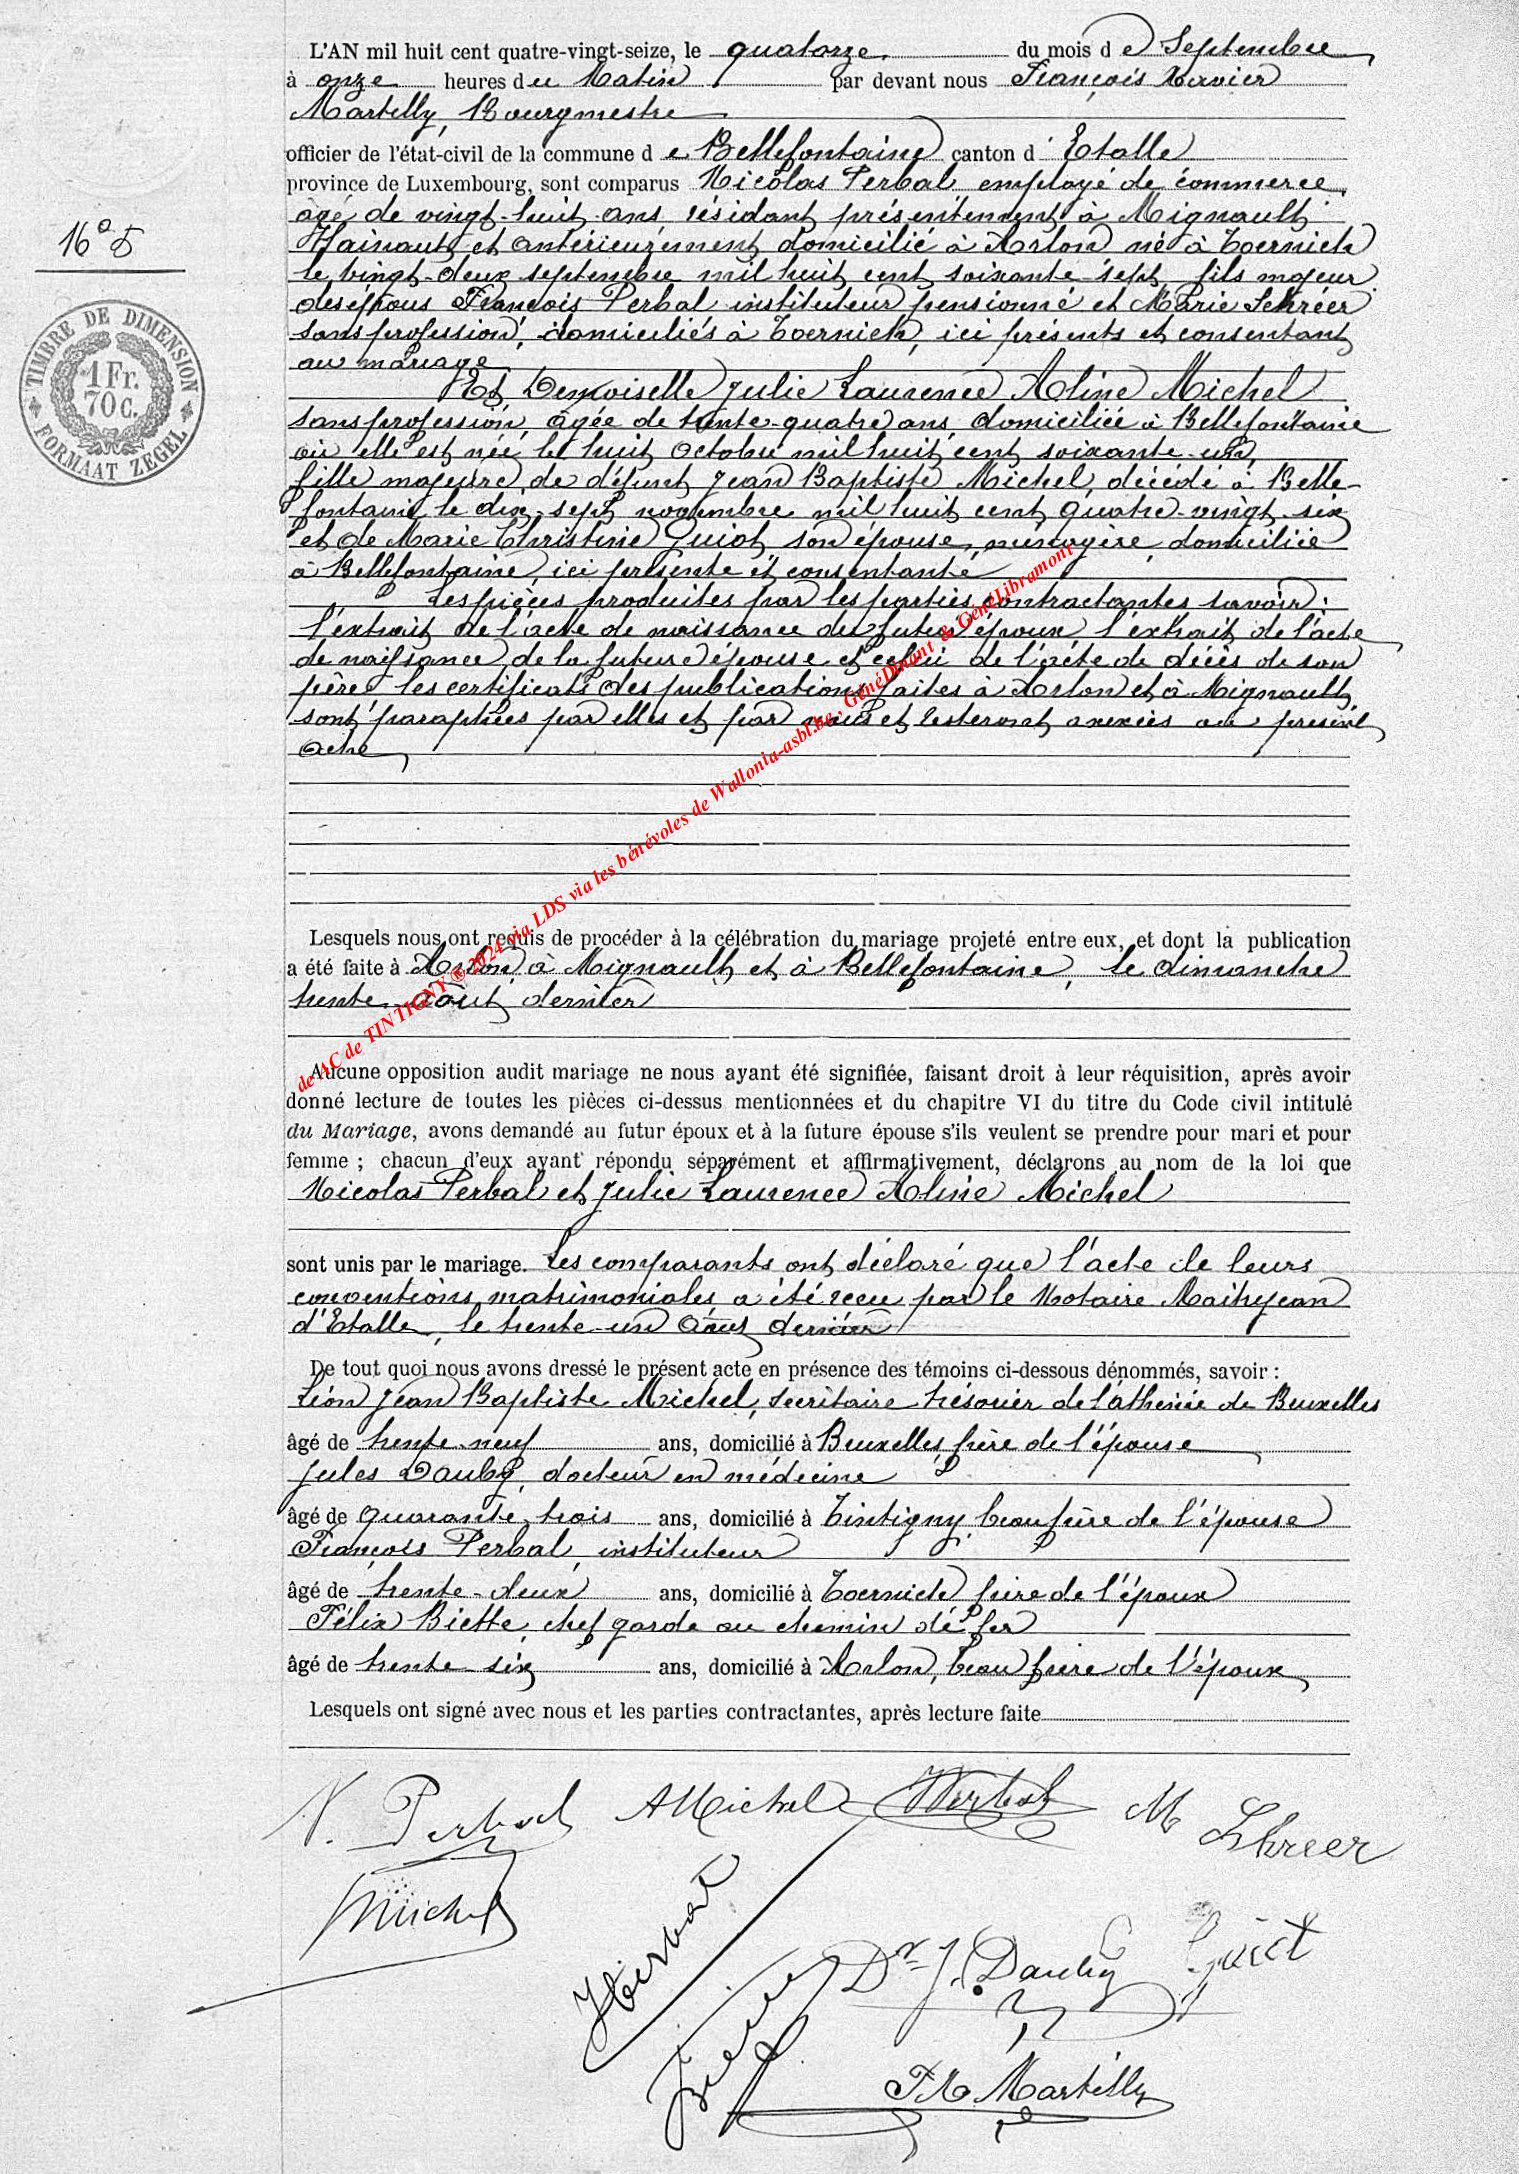 L'AN mil huit cent quatre-vingt-seize, le quatorze du mois de Septembre
à onze heures du Matin par devant nous François Xavier
Martilly, Bourgmestre
officier de l'état-civil de la commune de Bellefontaine canton d' Etalle
province de Luxembourg, sont comparus Nicolas Perbal employé de commerce,
âgé de vingt-huit ans résidant présentement à Mignault
Hainaut et antérieurement domicilié à Arlon né à Toernich
le vingt-deux septembre mil huit cent soixante-sept fils majeur
des époux François Perbal instituteur pensionné et Marie Schréer
sans profession, domiciliés à Toernich, ici présents et consentant
au mariage
Et Demoiselle Julie Laurence Aline Michel
sans profession, âgée de trente-quatre ans domiciliée à Bellefontaine
où elle est née le huit octobre mil huit cent soixante-un
fille majeure de défunt Jean Baptiste Michel décédé à Belle-
fontaine le dix-sept novembre mil huit cent quatre-vingt-six
et de Marie Christine Guiot son épouse, ménagère, domiciliée
à Bellefontaine, ici présente et consentante
Les pièces produites par les parties contractantes savoir:
l'extrait de l'acte de naissance du futur époux l'extrait de l'acte
de naissance de la future épouse et celui de l'acte de décès de son
père les certificats des publications faites à Arlon et à Mignault
sont paraphées par elles et par nous et resteront anexées au présent
acte
16° 5
TIMBRE DE DIMENSION
1 Fr.
70 C.
FORMAAT ZEGEL
de AC de TINTIGNY ® 2024 via LDS via les bénévoles de Wallonia-asbl.be, GénéDinant & GénéLibramont
Lesquels nous ont requis de procéder à la célébration du mariage projeté entre eux, et dont la publication
a été faite à Arlon, à Mignault et à Bellefontaine, le dimanche
trente août dernier
Aucune opposition audit mariage ne nous ayant été signifiée, faisant droit à leur réquisition, après avoir
donné lecture de toutes les pièces ci-dessus mentionnées et du chapitre VI du titre du Code civil intitulé
du Mariage, avons demandé au futur époux et à la future épouse s'ils veulent se prendre pour mari et pour
femme ; chacun d'eux ayant répondu séparément et affirmativement, déclarons au nom de la loi que
Nicolas Perbal et Julie Laurence Aline Michel
sont unis par le mariage. Les comparants ont déclaré que l'acte de leurs
conventions matrimoniales a été reçu par le Notaire Maitrejean
d'Etalle, le trente-un Août dernier
De tout quoi nous avons dressé le présent acte en présence des témoins ci-dessous dénommés, savoir :
Léon Jean Baptiste Michel, secrétaire trésorier de l'athénée de Bruxelles
âgé de trente-neuf ans, domicilié à Bruxelles, frère de l'épouse
Jules Dauby, docteur en médecine
âgé de quarante-trois ans, domicilié à Tintigny, beau frère de l'épouse
François Perbal, instituteur
âgé de trente-deux ans, domicilié à Toernich frère de l'époux
Félix Biette, chef garde au chemin de fer
âgé de trente-six ans, domicilié à Arlon, beau frère de l'époux
Lesquels ont signé avec nous et les parties contractantes, après lecture faite
N. Perbal AMichel Perbal M Schreer
Michel
Dr J. Dauby Guiot
Martilly